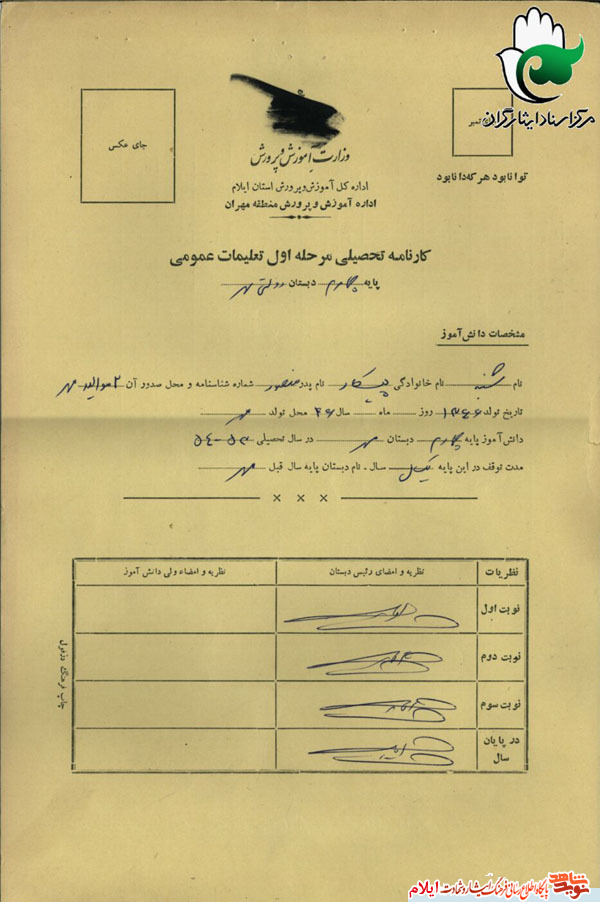 مرکز اسناد ایثارگران
تمبر
جای عکس
توانا بود هر که دانا بود
وزارت آموزش و پرورش
اداره کل آموزش و پرورش استان ایلام
اداره آموزش و پرورش منطقه مهران
کارنامه تحصیلی مرحله اول تعلیمات عمومی
پایه چهارم دبستان دولتی مهر
مشخصات دانش آموز
نام شنبه نام خانوادگی پیکار نام پدر منصور شماره شناسنامه و محل صدور آن ۲
تاریخ تولد روز ماه سال ۴۶ محل تولد
دانش آموز پایه چهارم دبستان مهر در سال تحصیلی ۵۳-۵۴
مدت توقف در این پایه یکسال سال - نام دبستان پایه سال قبل مهر
نظریات نظریه و امضای رئیس دبستان نظریه و امضاء ولی دانش آموز
نوبت اول
نوبت دوم
نوبت سوم
در پایان سال
چاپ فرهنگ دزفول
نوید شاهد پایگاه اطلاع رسانی فرهنگ ایثار و شهادت ایلام